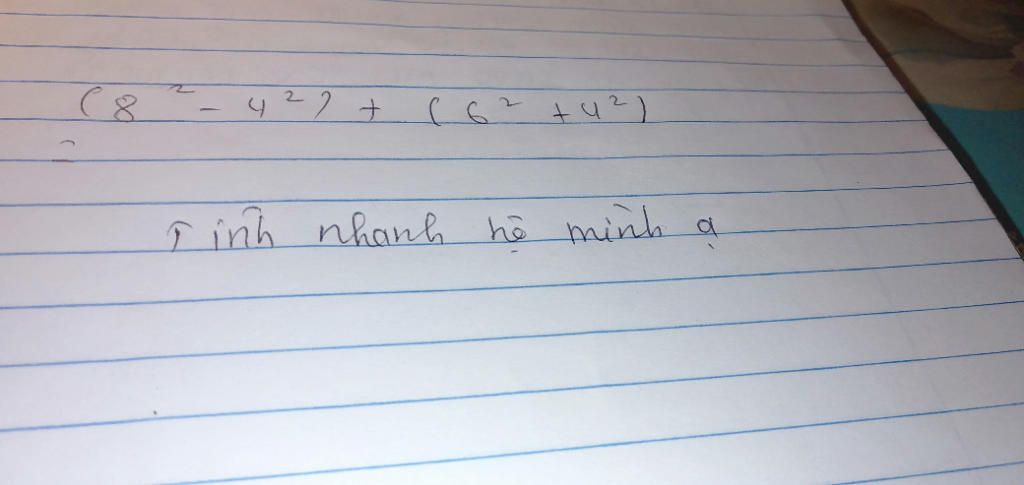 (8² - 4²) + (6² + 4²)
=
Tính nhanh hộ mình ạ